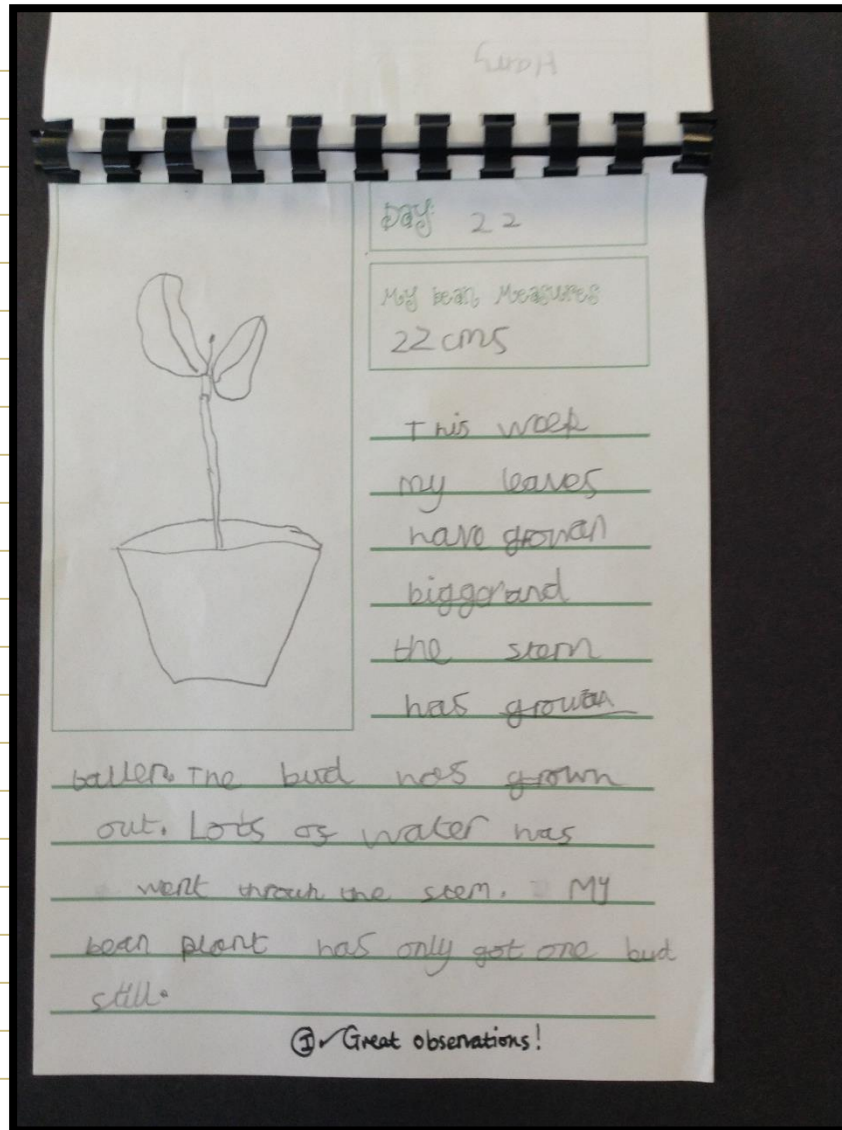 Harry
Day: 22
My bean Measures
22 cms
This week
my leaves
have growan
biggor and
the stem
has growan
taller. The bud has grown
out. Lots of water has
went throuh the stem. My
bean plant has only got one bud
still.
I ✓ Great observations!